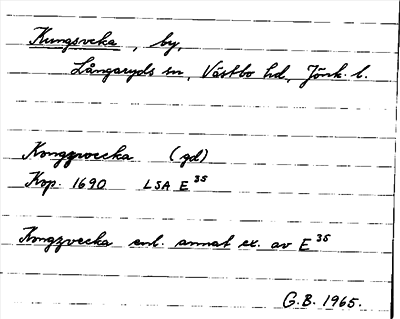 Kungsveka, by,
Långaryds sn, Västbo hd, Jönk. l.
Kongzwecka (gd)
Kop. 1690 LSA E 35
Kongzvecka enl. annat ex. av E 35
G.B. 1965.